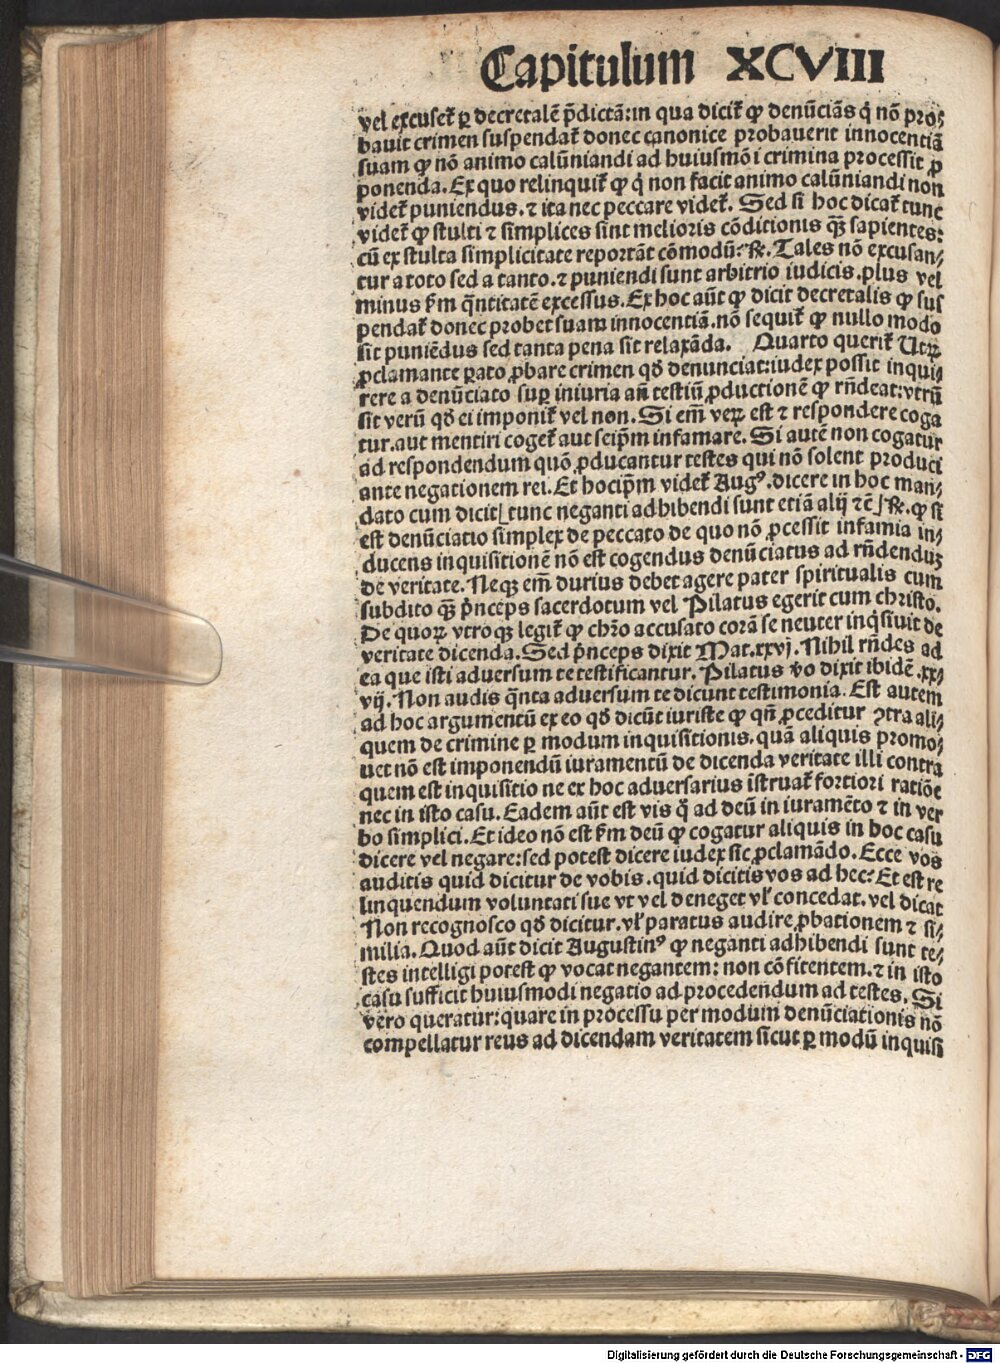 Capitulum XCVIII
vel excuset᷑ ꝑ decretalē p̄dictā: in qua dicit᷑ ꝙ denūciās q̇ nō pro⸗
bavit crimen suspendat᷑ donec canonice probauerit innocentiā
suam ꝙ nō animo calūniandi ad huiusmōi crimina processit ꝓ
ponenda. Ex quo relinquit᷑ ꝙ q̇ non facit animo calūniandi non
videt᷑ puniendus. ⁊ ita nec peccare videt᷑. Sed si hoc dicat᷑ tunc
videt᷑ ꝙ stulti ⁊ simplices sint melioris cōditionis qȝ̄ sapientes:
cū ex stulta simplicitate reportāt cōmodū: ℞. Tales nō excusan⸗
tur a toto sed a tanto. ⁊ puniendi sunt arbitrio iudicis. plus vel
minus ẜm q̄ntitatē excessus. Ex hoc aūt ꝙ dicit decretalis ꝙ sus
pendat᷑ donec probet suam innocentiā. nō sequit᷑ ꝙ nullo modo
sit puniēdus sed tanta pena sit relaxāda. Quarto querit᷑ Utꝝ
ꝓclamante ꝑato ꝓbare crimen qd̄ denunciat: iudex possit inqui⸗
rere a denūciato suꝑ iniuria an̄ testiū ꝓductionē ꝙ rn̄deat: vtrū
sit verū qd̄ ei imponit᷑ vel non. Si em̄ veꝝ est ⁊ respondere coga
tur. aut mentiri coget᷑ aut seip̄m infamare. Si autē non cogatur
ad respondendum quō ꝓducantur testes qui nō solent produci
ante negationem rei. Et hocip̄m videt᷑ Augꝰ. dicere in hoc man⸗
dato cum dicit⌊ tunc neganti adhibendi sunt etiā alij ⁊c̄⌋ ℞. ꝙ si
est denūciatio simplex de peccato de quo nō ꝓcessit infamia in⸗
ducens inquisitionē nō est cogendus denūciatus ad rn̄denduȝ
de veritate. Neqȝ em̄ durius debet agere pater spiritualis cum
subdito qȝ̄ p̄nceps sacerdotum vel Pilatus egerit cum christo.
De quoꝝ vtroqȝ legit᷑ ꝙ chr̄o accusato corā se neuter inq̇siuit de
veritate dicenda. Sed p̄nceps dixit Mat. xxvj. Nihil rn̄des ad
ea que isti aduersum te testificantur. Pilatus v̄o dixit ibidē. xx⸗
vij. Non audis q̄nta aduersum te dicunt testimonia. Est autem
ad hoc argumentū ex eo qd̄ dicūt iuriste ꝙ qn̄ ꝓceditur ꝯtra ali⸗
quem de crimine ꝑ modum inquisitionis. quā aliquis promo⸗
uet nō est imponendū iuramentū de dicenda veritate illi contra
quem est inquisitio ne ex hoc aduersarius īstruat᷑ fortiori ratiōe
nec in isto casu. Eadem aūt est vis q̄ ad deū in iuramēto ⁊ in ver
bo simplici. Et ideo nō est ẜm deū ꝙ cogatur aliquis in hoc casu
dicere vel negare: sed potest dicere iudex sic ꝓclamādo. Ecce vos
auditis quid dicitur de vobis. quid dicitis vos ad hec: Et est re
linquendum voluntati sue vt vel deneget vł concedat. vel dicat
Non recognosco qd̄ dicitur. vł paratus audire ꝓbationem ⁊ si⸗
milia. Quod aūt dicit Augustinꝰ ꝙ neganti adhibendi sunt te⸗
stes intelligi potest ꝙ vocat negantem: non cōfitentem. ⁊ in isto
casu sufficit huiusmodi negatio ad procedendum ad testes. Si
vero queratur: quare in processu per modum denūciationis nō
compellatur reus ad dicendam veritatem sicut ꝑ modū inquisi
Digitalisierung gefördert durch die Deutsche Forschungsgemeinschaft - DFG